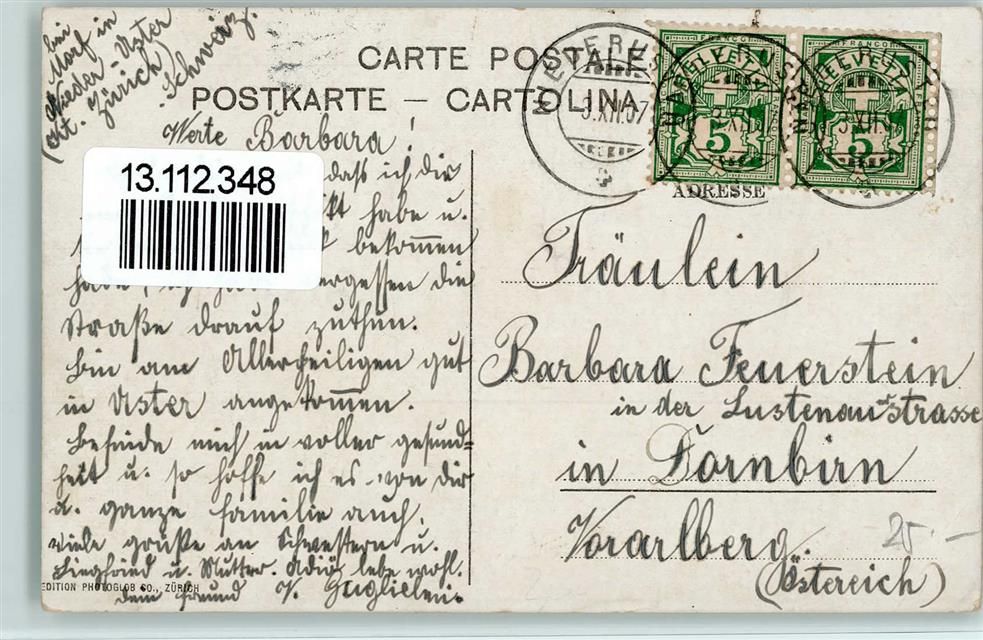 bei
Morf in
Nieder-Uster
(Kt. Zürich)
Schweiz.
CARTE POSTALE
POSTKARTE – CARTOLINA
3.XII.07
FRANCO
HELVETIA
5
FRANCO
HELVETIA
5
ADRESSE
Werte Barbara!
13.112.348
dass ich dir
habe u.
bekommen
vergessen die
Straße drauf zuthun.
bin am Allerheiligen gut
in Uster angekommen.
befinde mich in voller gesund=
heit u. so hoffe ich es von dir
u. ganze familie auch.
viele grüße an Schwestern u.
Siegfried u. Mutter. Adiö lebe wohl.
dein freund
EDITION PHOTOGLOB CO., ZÜRICH
Fräulein
Barbara Feuerstein
in der Lustenauerstrasse
in Dornbirn
Vorarlberg.
(Östereich)
25.-